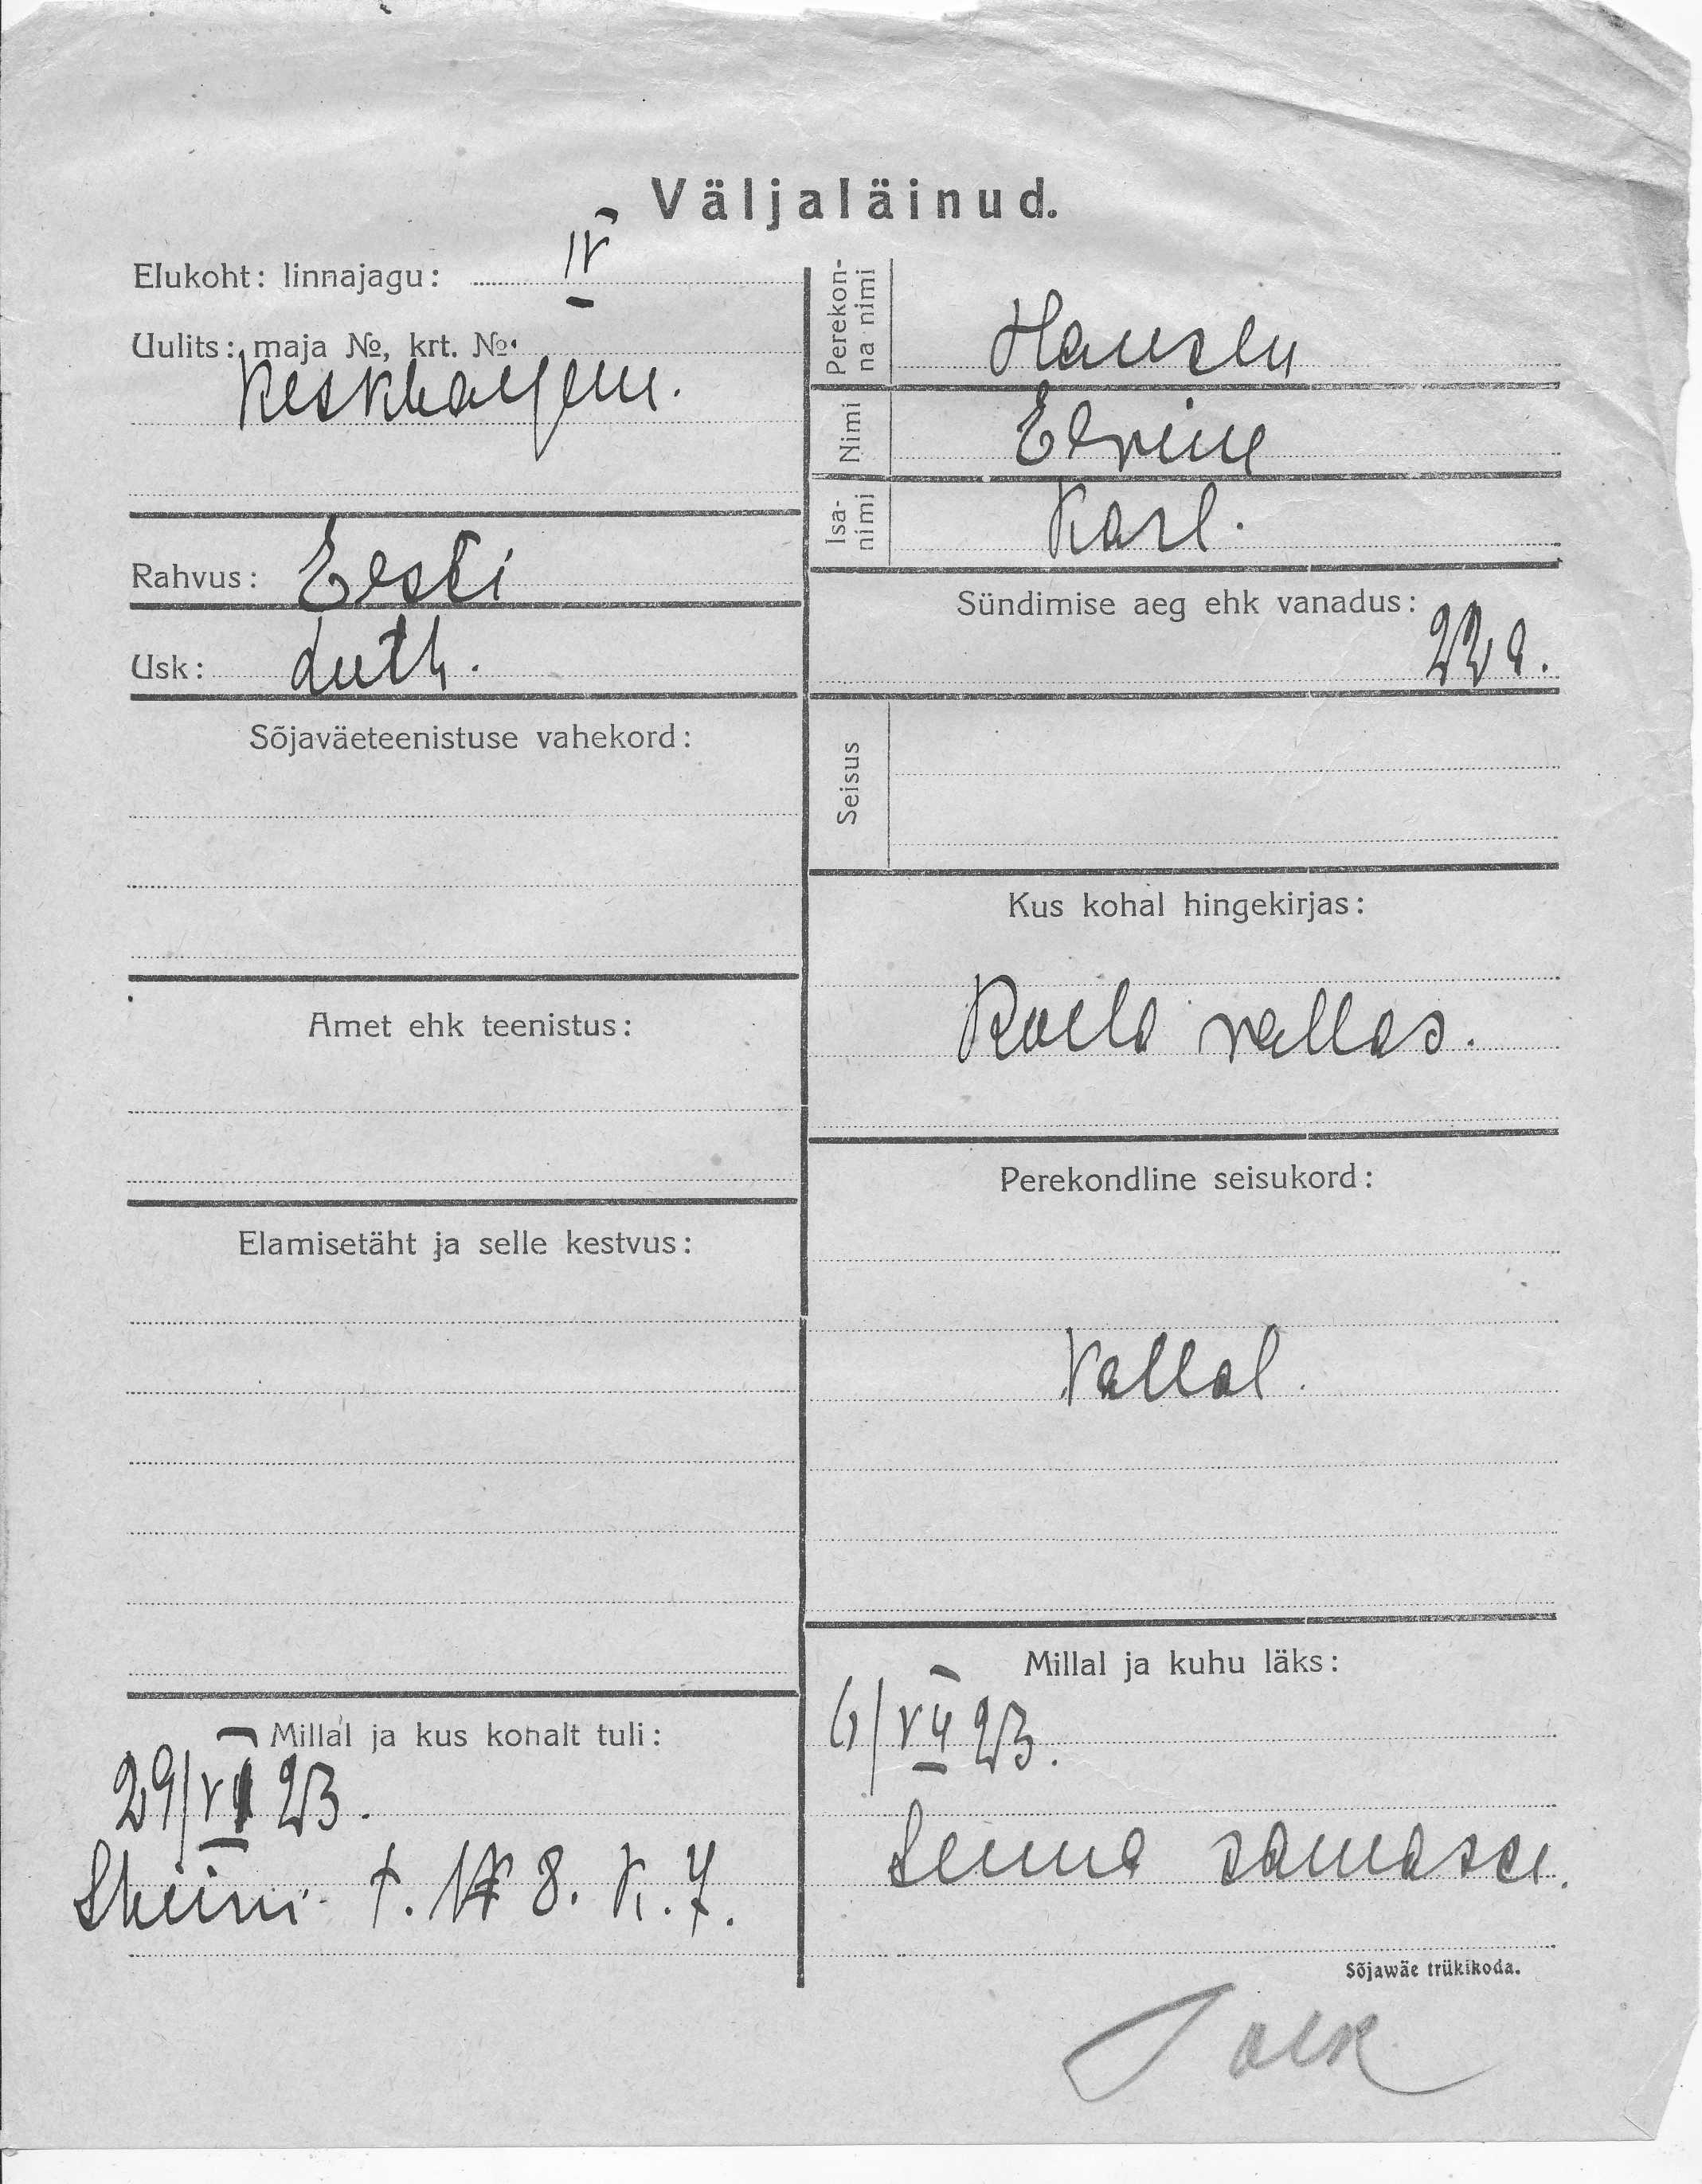 Väljaläinud.
Elukoht: linnajagu: IV
Uulits: maja №, krt. №
Keskhaigem.
Rahvus: Eesti
Usk: Luth.
Sõjaväeteenistuse vahekord:
Amet ehk teenistus:
Elamisetäht ja selle kestvus:
Millal ja kus kohalt tuli:
29/VI 23.
t. 8. K. 7.
Perekonna nimi Hansen
Nimi Elvine
Isanimi Karl.
Sündimise aeg ehk vanadus:
22 a.
Seisus
Kus kohal hingekirjas:
Roela vallas.
Perekondline seisukord:
Vallal.
Millal ja kuhu läks:
6/VII 23.
Senna samasse.
Sõjawäe trükikoda.